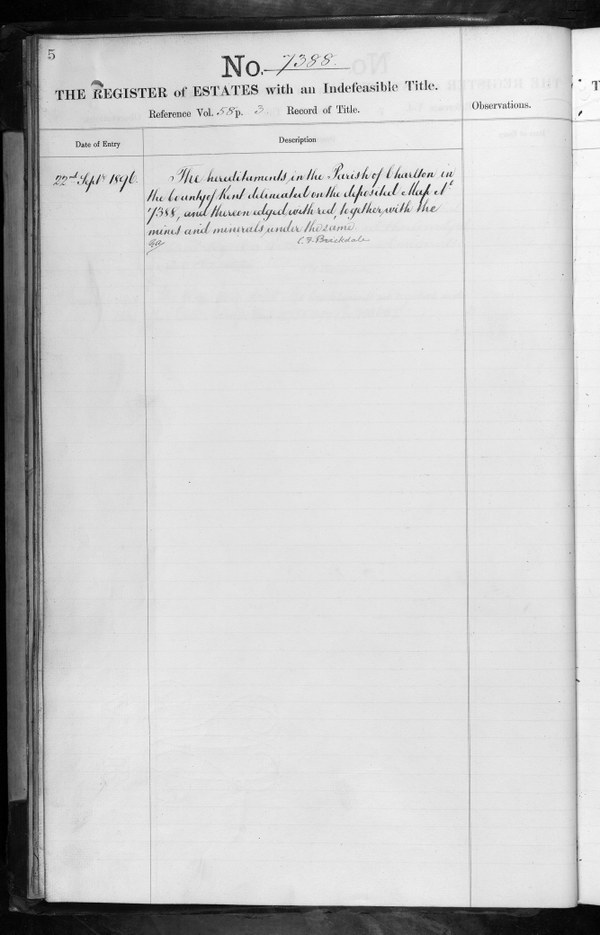 5
No. 7388.
THE REGISTER of ESTATES with an Indefeasible Title.
Reference Vol. 58 p. 3. Record of Title.
Observations.
Date of Entry
Description
22nd Septr 1896.
The hereditaments in the Parish of Charlton in
the County of Kent delineated on the deposited Map No
7388, and thereon edged with red, together with the
mines and minerals under the same
C. F. Brickdale